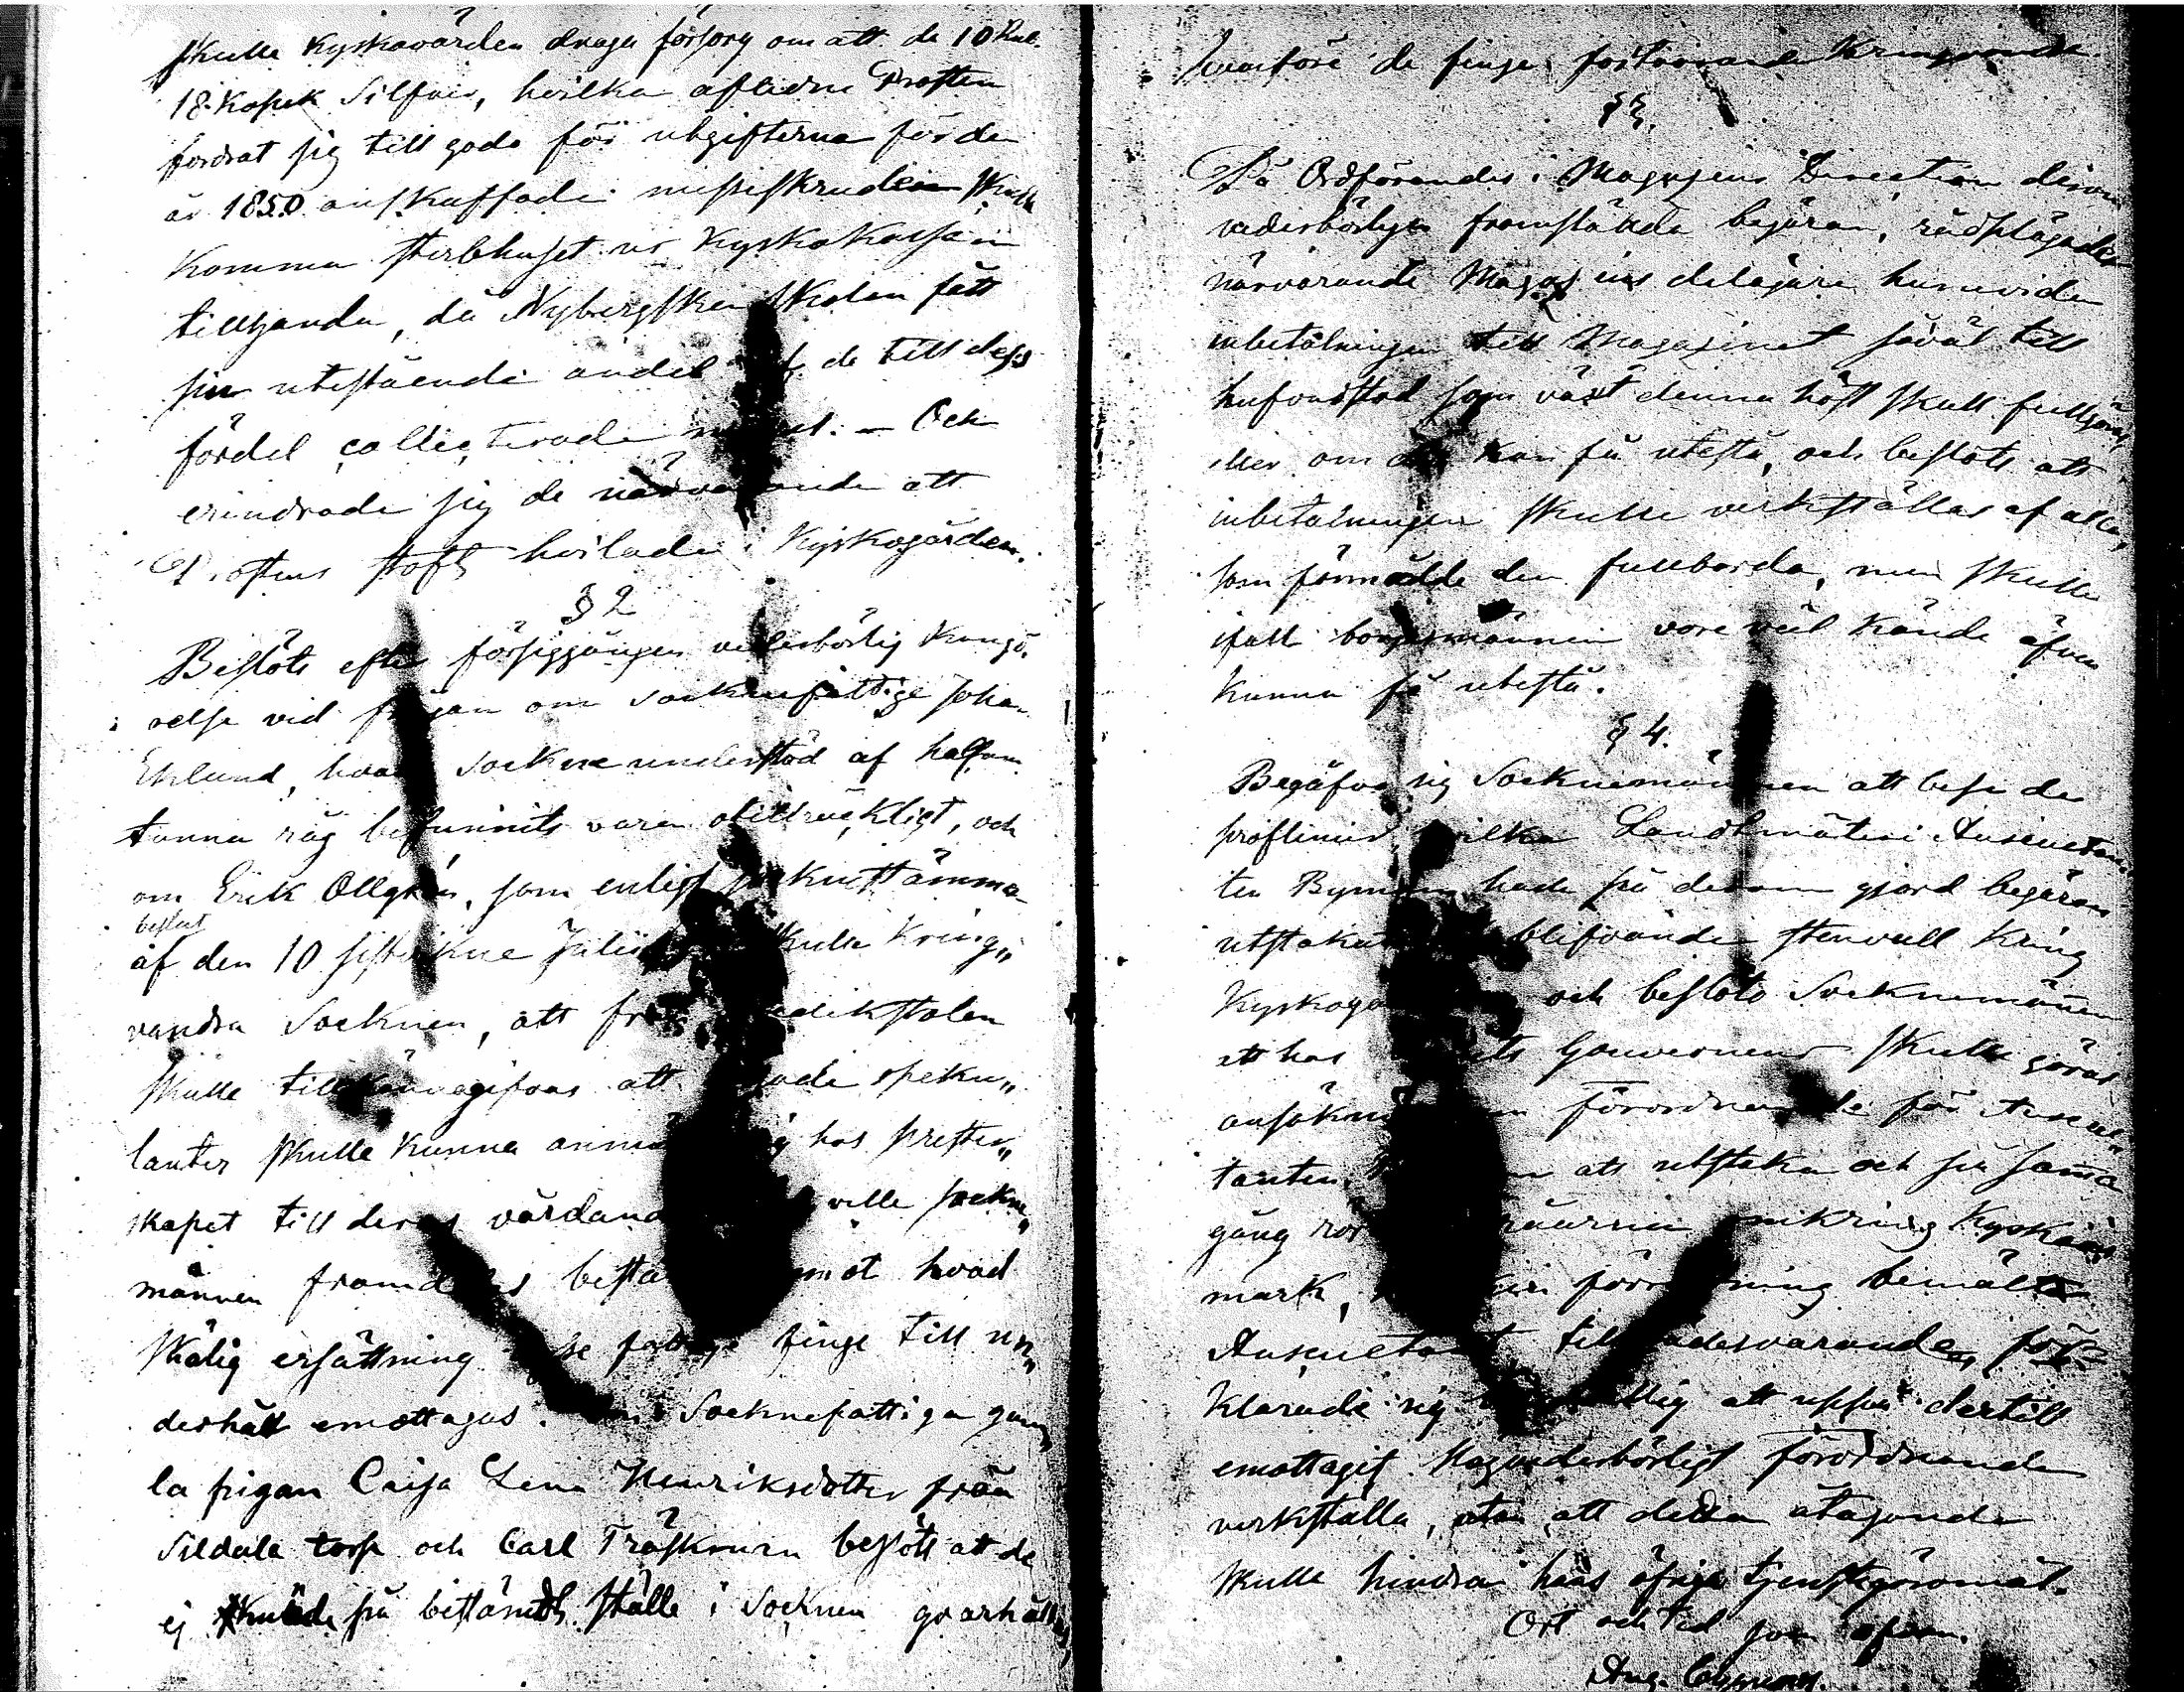 skulle Kyrkovärden draga försorg om att de 10 Rub.
18 Kopek Silfver, hvilka aflidne Prosten
fordrat sig till godo för utgifterna för de
år 1850 anskaffade messeskruden skulle
Komma sterbhuset ur Kyrkokassan
tillhanda, då Nybergska skolan fått
sin utestående andel af de till dess
fördel collecterade . – Och
erindrade sig de närvarande att
Prostens stoft hvilade i Kyrkogården.
§ 2
Beslöts efter försiggången vederbörlig Kungö-
relse vid frågan om sockenfattige Johan
Eklund, hvars Sockne understöd af half
tunna råg befunnits vara otillräckligt, och
om Erik Ollgrén, som enligt sockenstämma
beslut
af den 10 sistvikne Julii skulle Kring„
vandra Socknen, att från Predikstolen
skulle tillkännagifvas att speku„
lanter skulle Kunna anmäla sig hos prester„
skapet till deras vårdande ville sockne„
männen framdeles bestämma mot hvad
skälig ersättning finge till un„
derhåll emottagas. Socknefattiga gam„
la pigan Caisa Lena Henriksdotter från
Sildala torp och Carl Träskman beslöts att de
ej på bestämdt ställe i Socknen qvarhållas,
hvarföre de finge fortvarande Kringvandra
§ 3.
På Ordförandes i Magazins Direction derom
vederbörligen framställda begäran, rådplägade
närvarande Magazins delägare huruvida
inbetalningen till Magasinet såväl till
hufvudstod som växt denna höst skall fullgöras,
eller om den Kan få utestå, och beslöts att
inbetalningen skulle verkställas af alla,
som förmådde den fullborda, men skulle
ifall borgesmännen vore väl Kände äfven
Kunna få utestå.
§ 4.
Begåfvo sig Socknemännen att bese de
profliner, hvilka Landtmäteri Auscultan-
ten Byman hade på derom gjord begäran
utstakat blifvande stenvall Kring
Kyrkogården och beslöto Socknemännen
att hos Länets Gouverneur skulle göras
ansökning om förordnande för Auscul„
tanten Byman att utstaka och på samma
gång rör omkring Kyrkans
mark, bemälte
Auscultant tillstädesvarande, för-
Klarade sig villig att uppå dertill
emottagit Högvederbörligt förordnande
verkställa, utan att detta åtagande
skulle hindra hans öfriga tjenstegöromål.
Ort och tid som ofvan.
Aug.